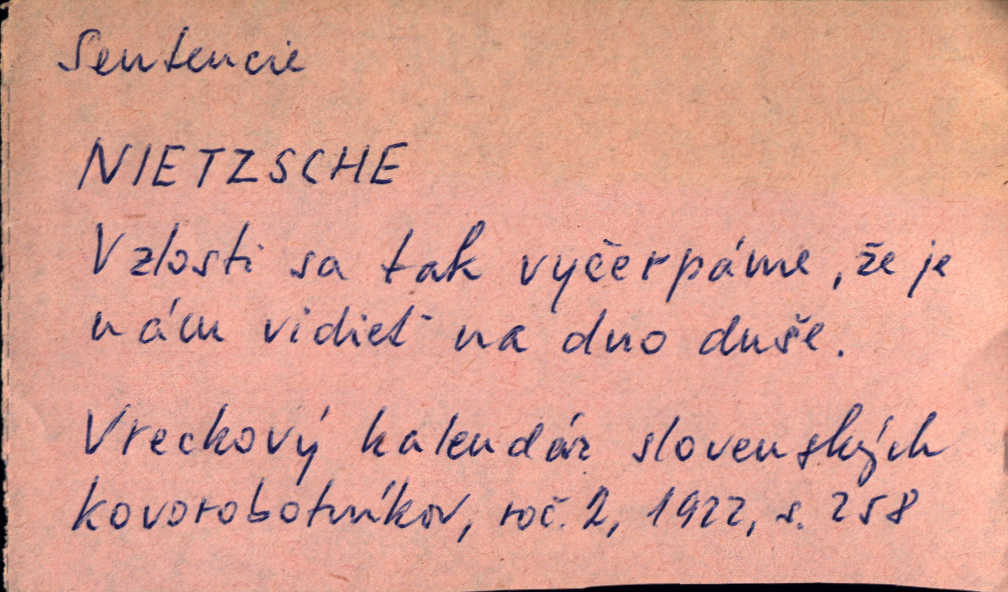 Sentencie
NIETZSCHE
V zlosti sa tak vyčerpáme, že je
nám vidieť na dno duše.
Vreckový kalendár slovenských
kovorobotníkov, roč. 2, 1922, s. 258